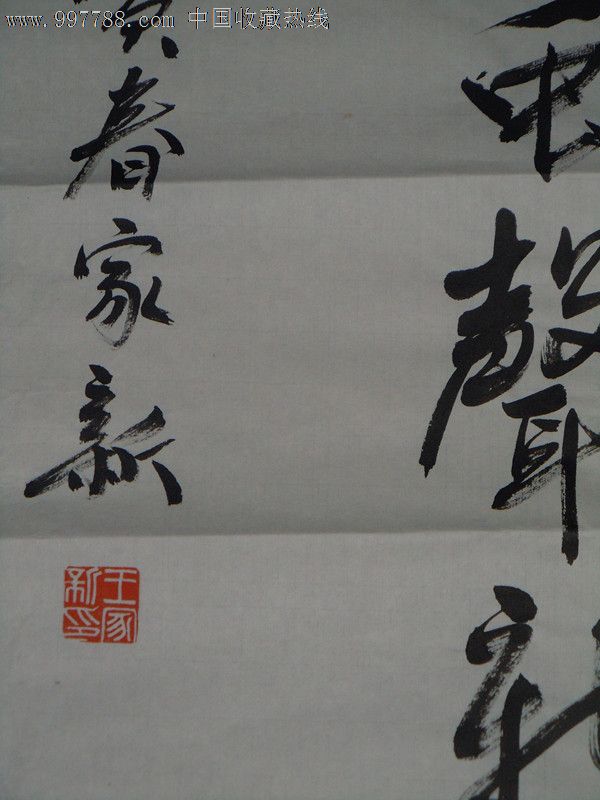 www.997788.com 中国收藏热线
虫聲新
春家新
王家新印